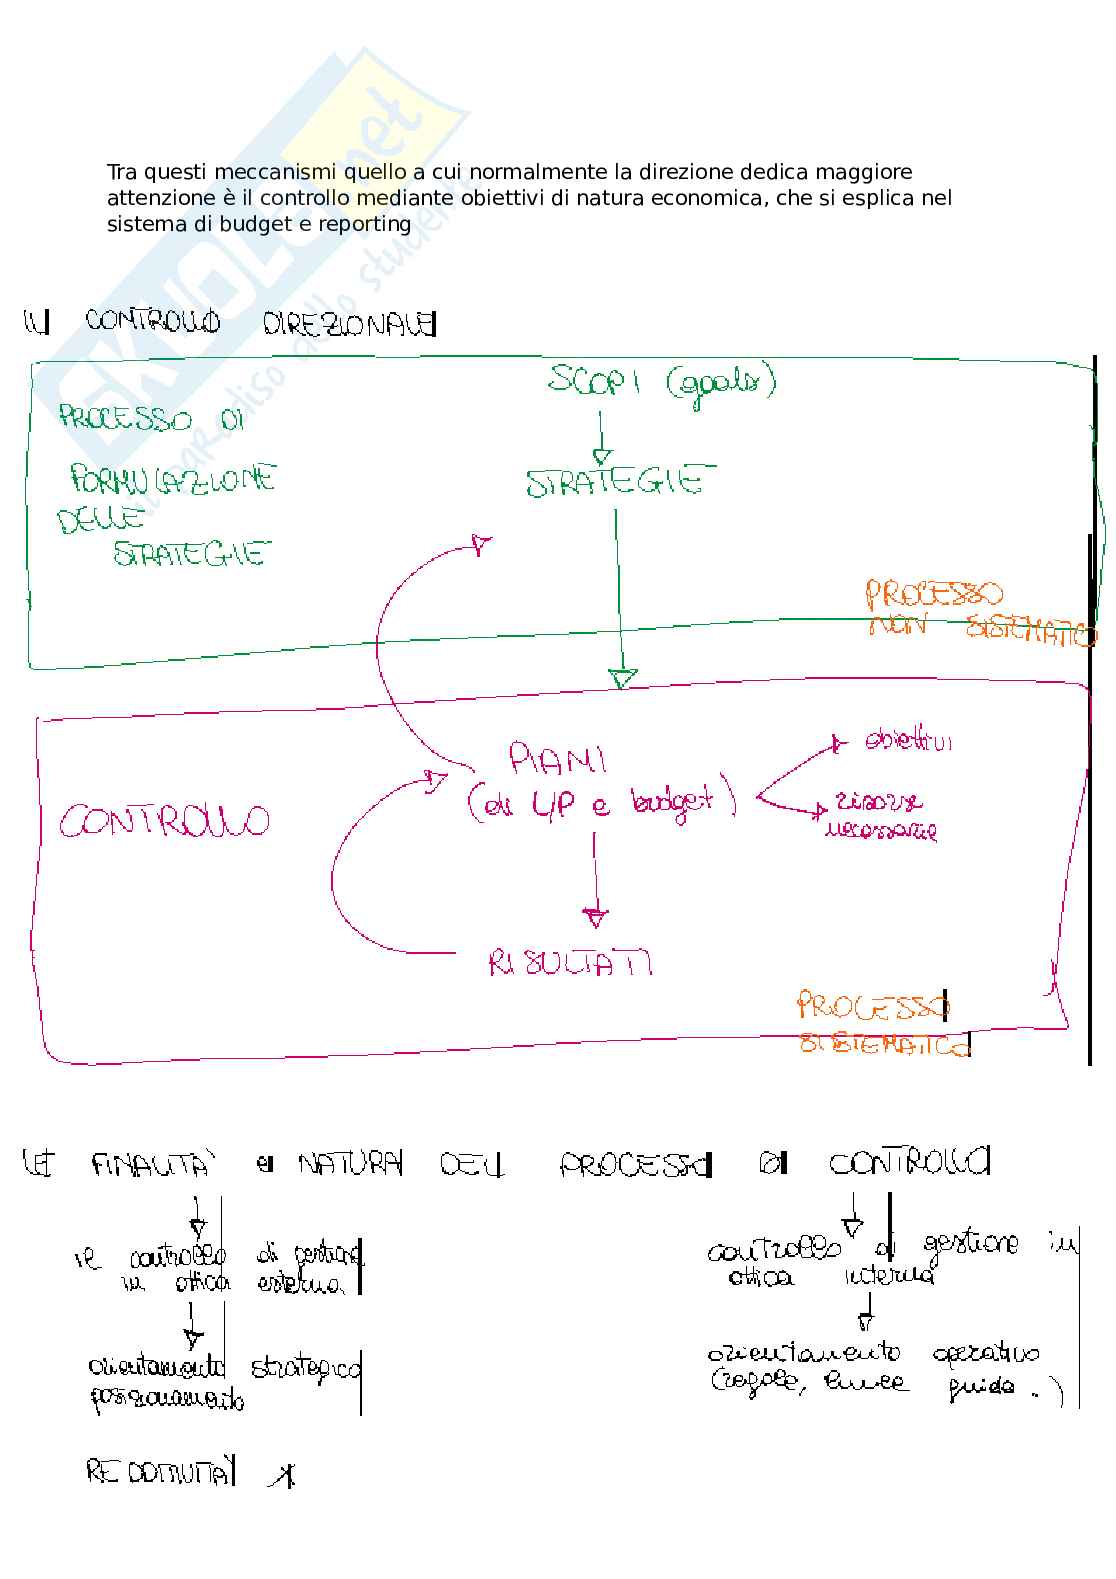 SKUOLA.net
il paradiso dello studente
Tra questi meccanismi quello a cui normalmente la direzione dedica maggiore
attenzione è il controllo mediante obiettivi di natura economica, che si esplica nel
sistema di budget e reporting
IL CONTROLLO DIREZIONALE
SCOPI (goals)
PROCESSO DI
FORMULAZIONE
DELLE
STRATEGIE
STRATEGIE
PROCESSO
NON SISTEMATICO
PIANI
(di L/P e budget)
obiettivi
risorse
necessarie
CONTROLLO
RISULTATI
PROCESSO
SISTEMATICO
LE FINALITA' e NATURA DEL PROCESSO DI CONTROLLO
il controllo di gestione
in ottica esterna
controllo di gestione in
ottica interna
orientamento strategico
posizionamento
orientamento operativo
(regole, linee guida..)
REDDITIVITÀ